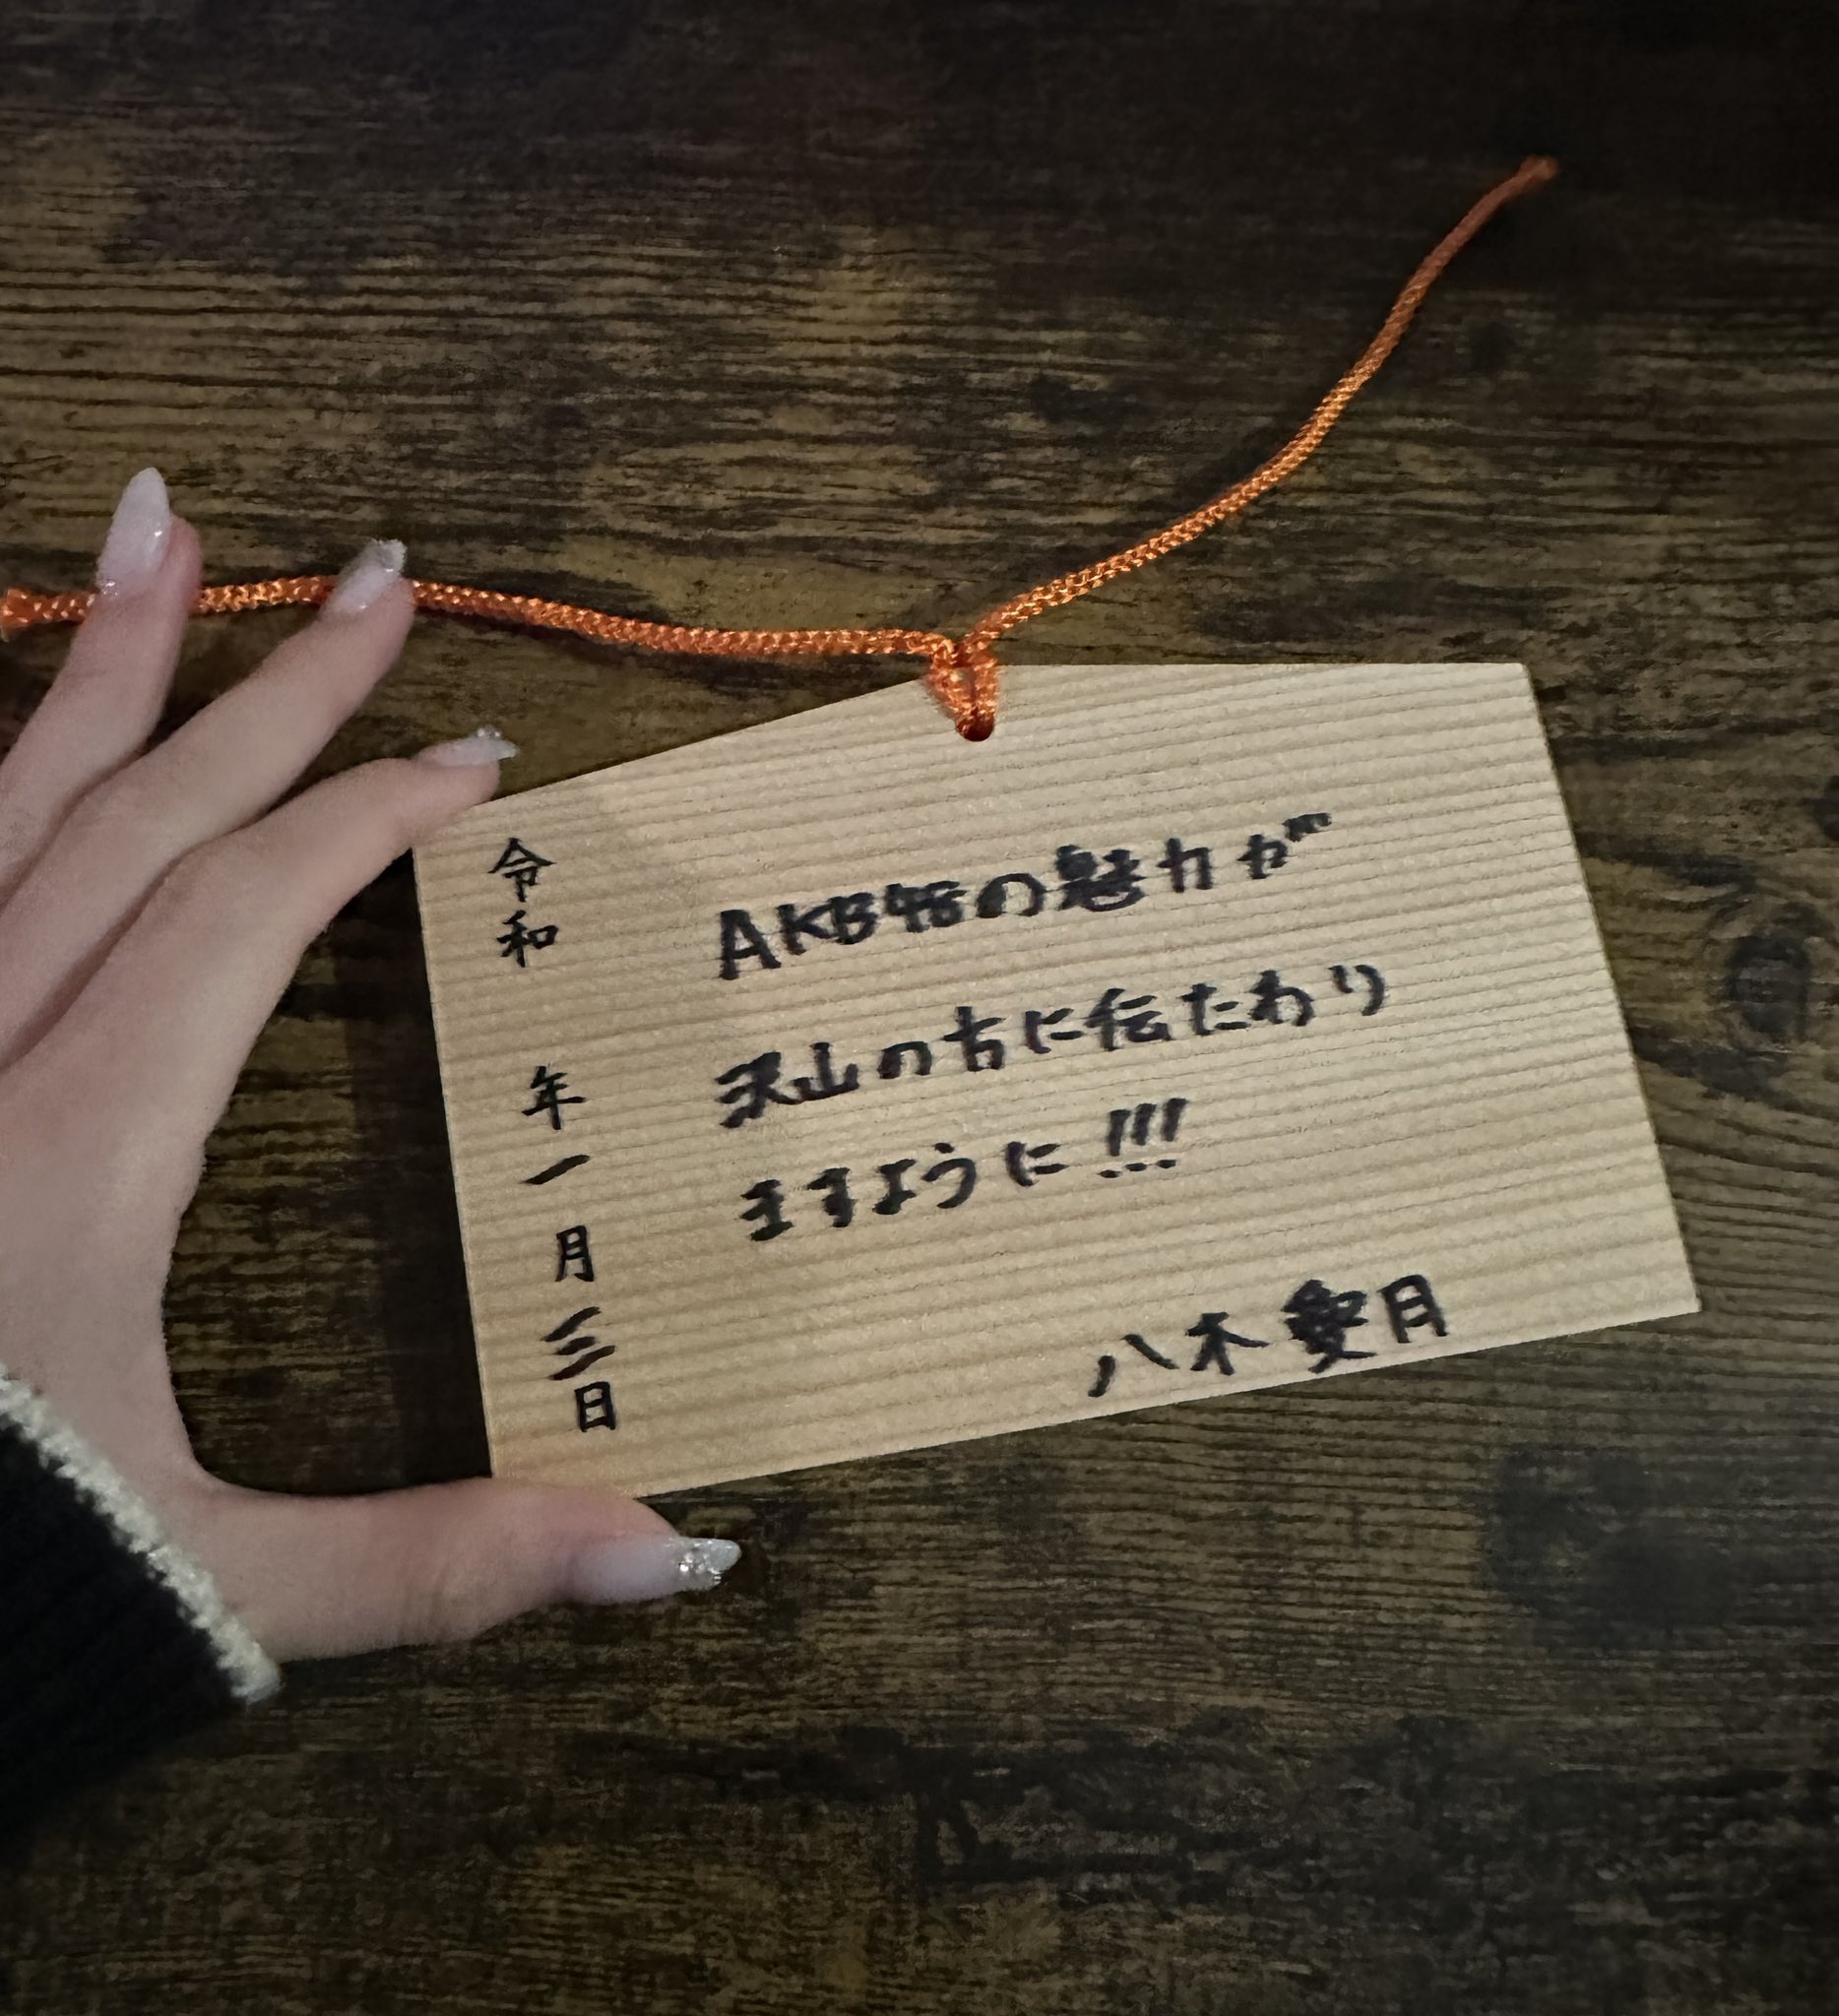 令和 年一月三日
AKB48の魅力が
沢山の方に伝たわり
ますように!!!
八木愛月